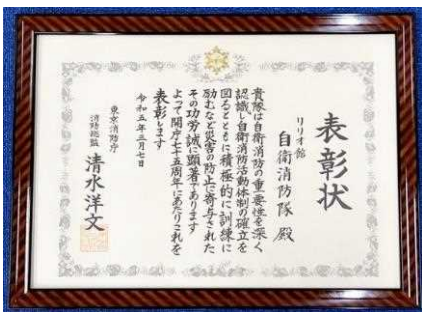 表彰状
リリオ館
自衛消防隊 殿
貴隊は自衛消防の重要性を深く
認識し自衛消防活動体制の確立を
図るとともに積極的に訓練に
励むなど災害の防止に寄与された
その功労誠に顕著であります
よって開庁七十五周年にあたりこれを
表彰します
令和五年三月七日
東京消防庁
消防総監 清水洋文